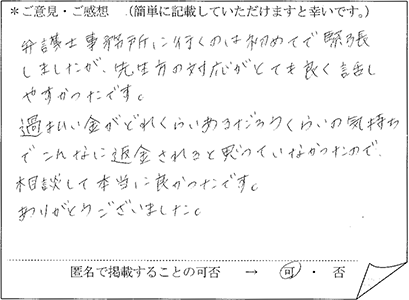 ＊ご意見・ご感想　（簡単に記載していただけますと幸いです。）
弁護士事務所に行くのは初めてで緊張
しましたが、先生方の対応がとても良く話し
やすかったです。
過払い金がどれくらいあるだろうくらいの気持ち
でこんなに返金されると思っていなかったので、
相談して本当に良かったです。
ありがとうございました。
匿名で掲載することの可否　→　可 ・ 否